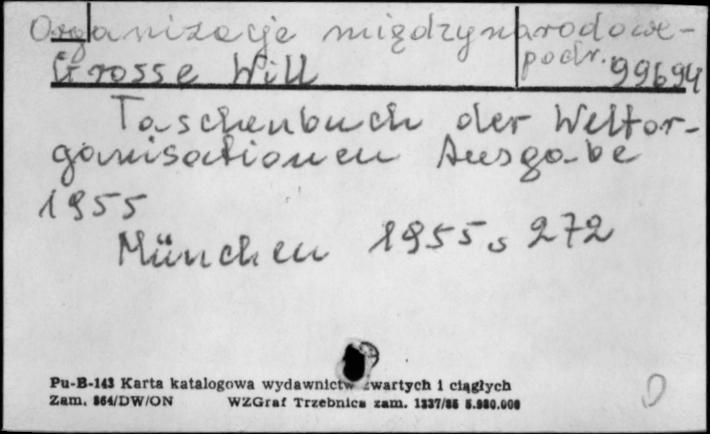 Organizacje międzynarodowe-
podr.
Grosse Will 99694
Taschenbuch der Weltor-
ganisationen Ausgabe
1955
München 1955 s 272
Pu-B-143 Karta katalogowa wydawnictw zwartych i ciągłych
Zam. 864/DW/ON WZGraf Trzebnica zam. 1337/85 5.980.000